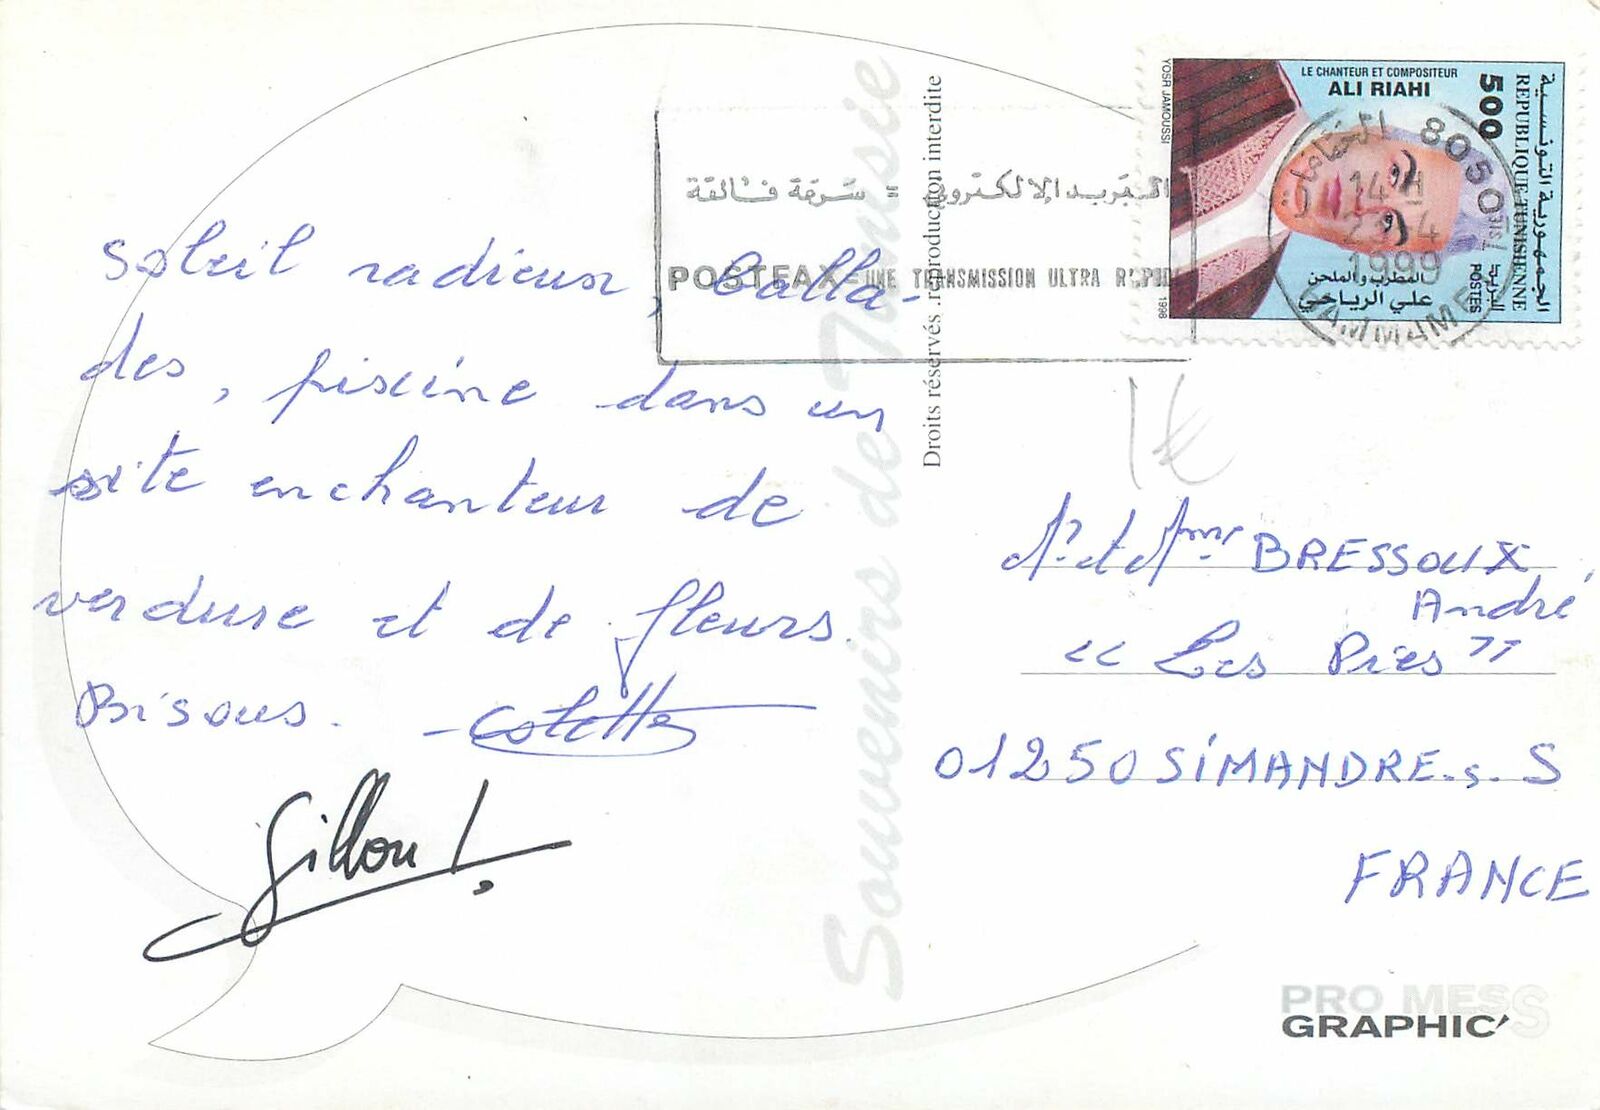 Soleil radieux, balla-
des, piscine dans un
site enchanteur de
verdure et de fleurs.
Bisous. Colette
Gillou!
Souvenirs de Tunisie
Droits réservés. reproduction interdite
البريد الإلكتروني = سرعة فائقة
POSTFAX = UNE TRANSMISSION ULTRA RAPIDE
LE CHANTEUR ET COMPOSITEUR
ALI RIAHI
500
الجمهورية التونسية
REPUBLIQUE TUNISIENNE
البريد
POSTES
المطرب والملحن
علي الرياحي
YOSR JAMOUSSI
1996
8050
14 H
23-4
1999
HAMMAMET
1€
Mr et Mme BRESSOUX
André
"Les Pies"
01250 SIMANDRE-s-S
FRANCE
PRO MESS
GRAPHIC'